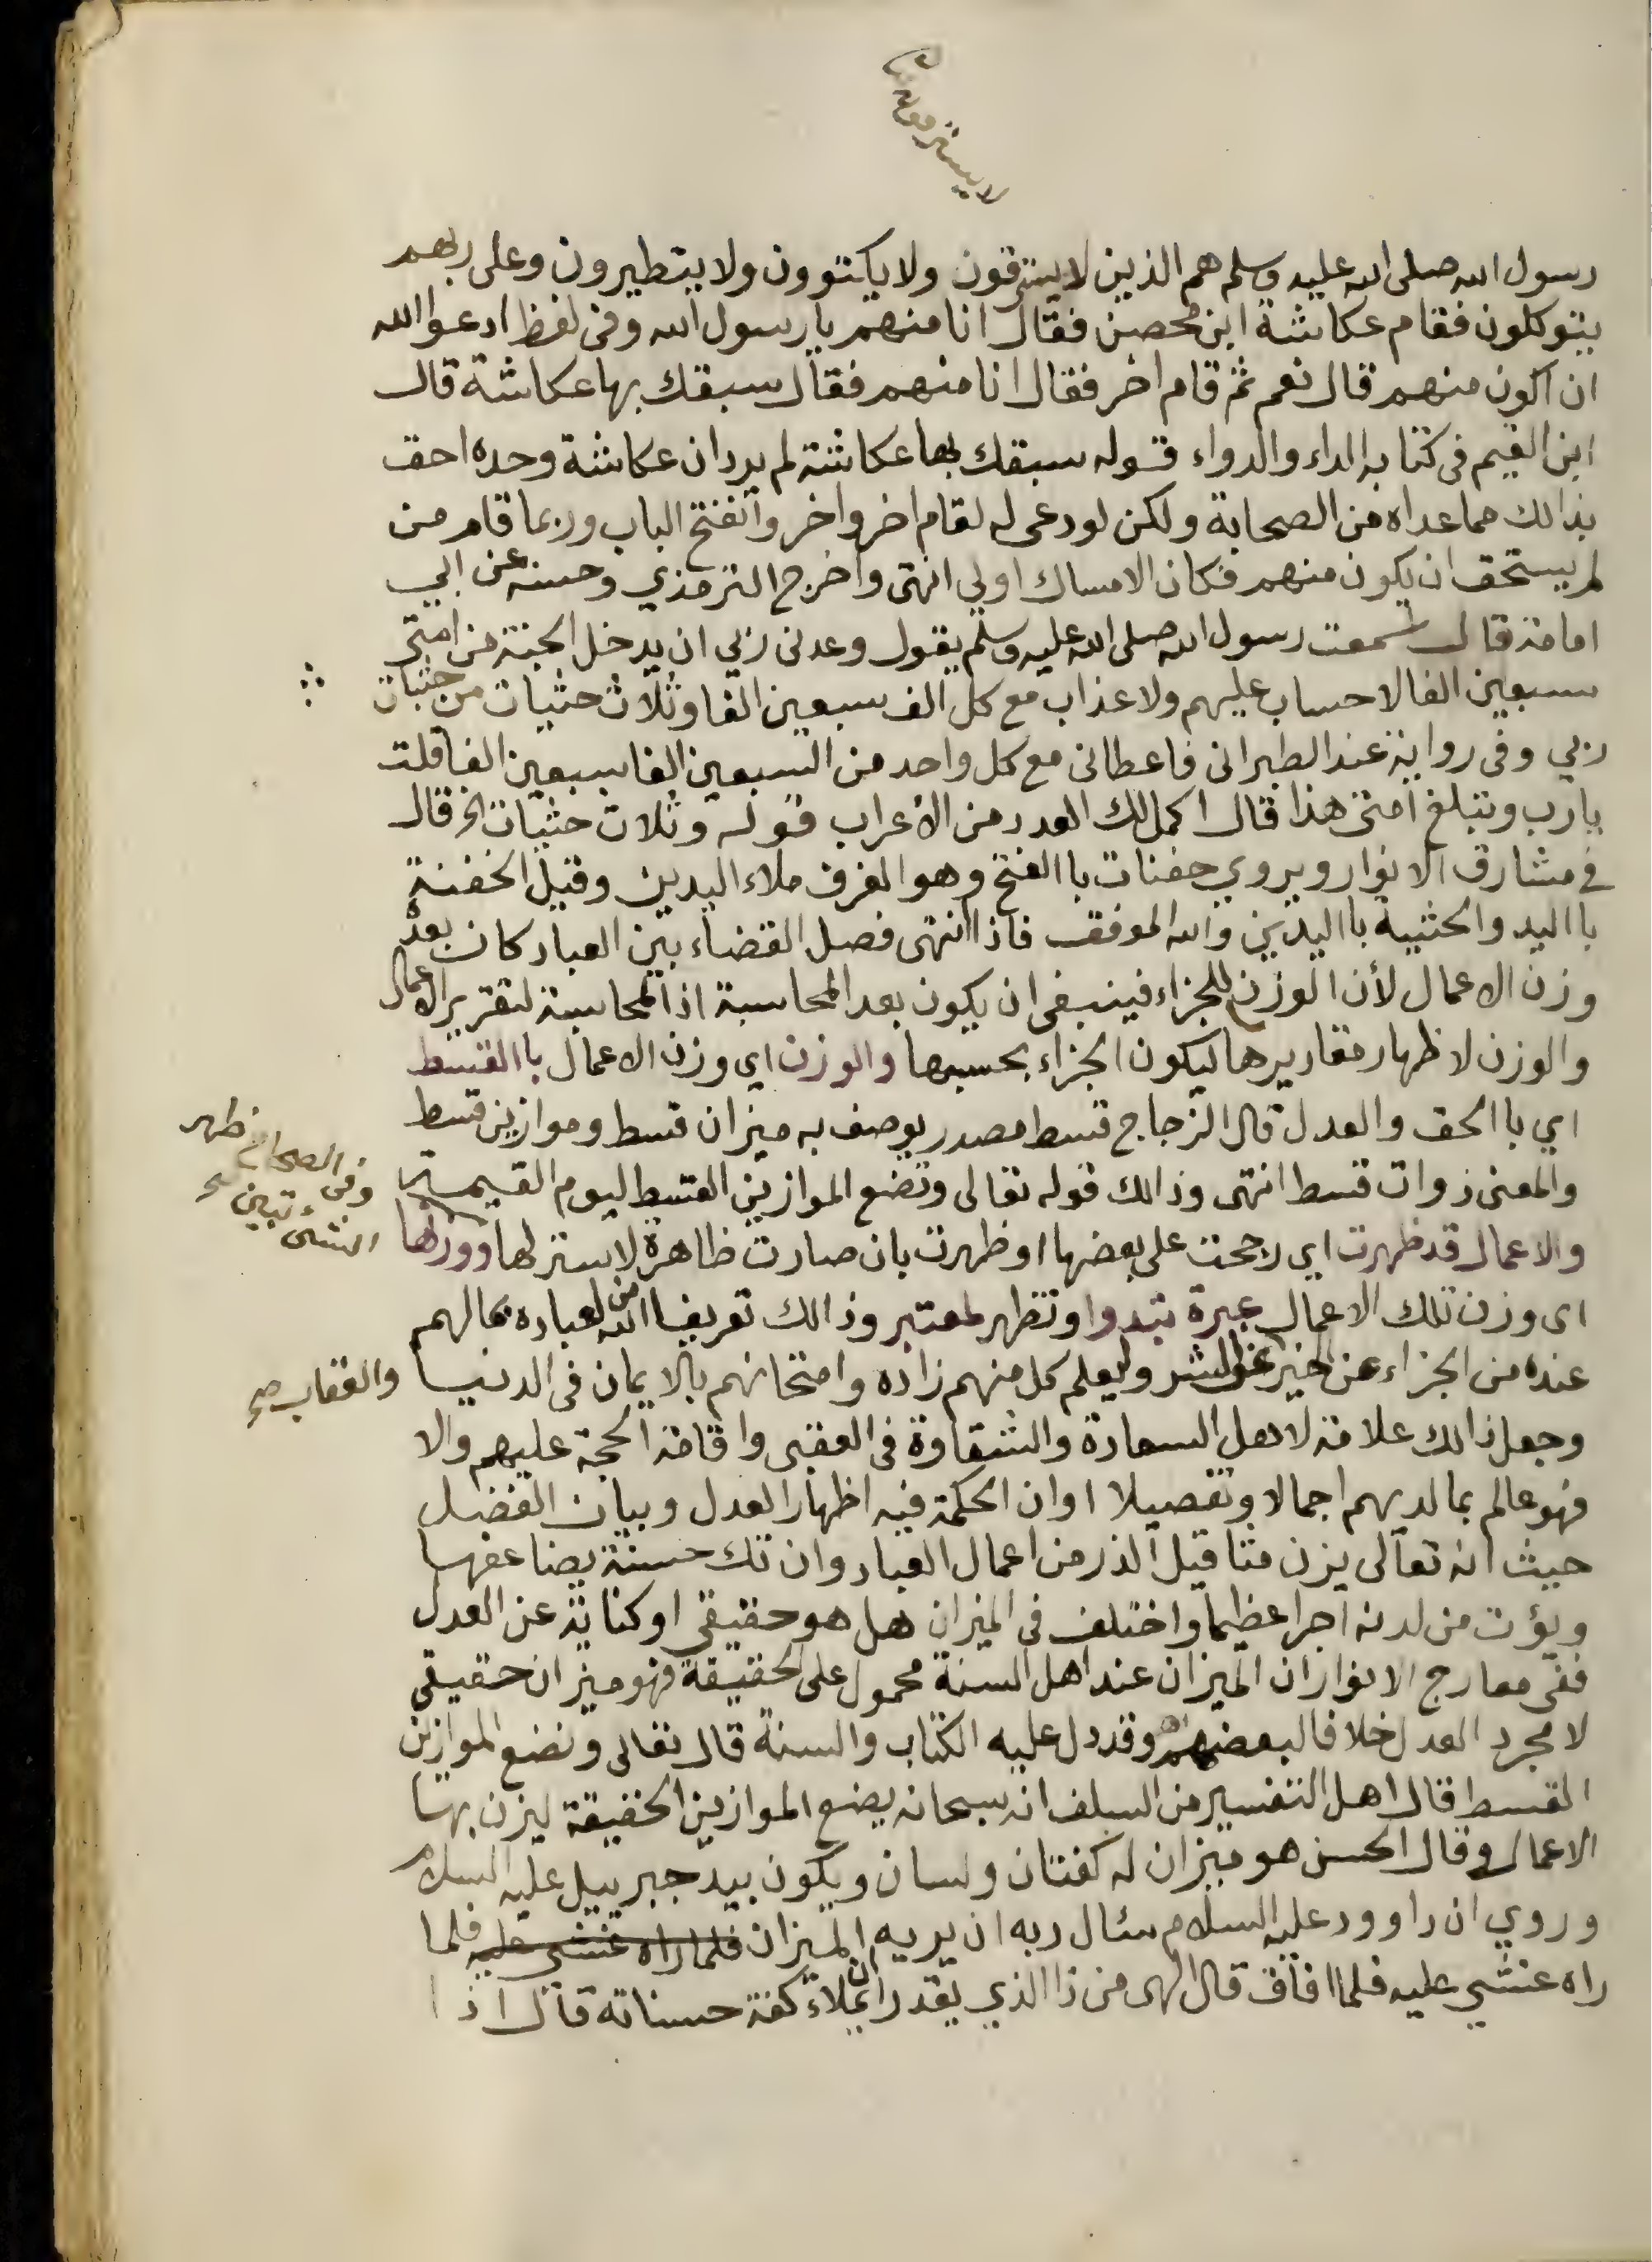 لا يسترقون
رسول الله صلى الله عليه وسلم هم الذين لا يسترقون ولا يكتوون ولا يتطيرون وعلى ربهم
يتوكلون فقام عكاشة ابن محصن فقال انا منهم يا رسول الله وفى لفظ ادعوا الله
ان اكون منهم قال نعم ثم قام اخر فقال انا منهم فقال سبقك بها عكاشة قال
ابن القيم فى كتابه الداء والدواء قوله سبقك بها عكاشة لم يرد ان عكاشة وحده احق
بذالك مما عداه من الصحابة ولكن لو دعى له لقام اخر واخر وانفتح الباب وربما قام من
لم يستحق ان يكون منهم فكان الامساك اولي انتهى واخرج الترمذي وحسنه عن ابي
امامة قال سمعت رسول الله صلى الله عليه وسلم يقول وعدنى ربي ان يدخل الجنة من امتى
سبعين الفا لا حساب عليهم ولا عذاب مع كل الف سبعين الفا وثلاث حثيات من حثيات
ربي وفى رواية عند الطبرانى فاعطانى مع كل واحد من السبعين الفا سبعين الفا قلت
يا رب وتبلغ امتى هذا قال اكمل لك العدد من الأعراب قوله وثلاث حثيات الخ قال
في مشارق الانوار ويروي حفنات با الفتح وهو الغرف ملاء اليدين وقيل الحفنة
با اليد والحثية با اليدين والله الموفق فاذا انتهى فصل القضاء بين العباد كان بعده
وزن الاعمال لأن الوزن للجزاء فينبغى ان يكون بعد المحاسبة اذ المحاسبة لتقرير الاعمال
والوزن لاظهار مقاديرها ليكون الجزاء بحسبها والوزن اى وزن الاعمال با القسط
اي با الحق والعدل قال الزجاج قسط مصدر يوصف به ميزان قسط وموازين قسط
والمعنى ذوات قسط انتهى وذالك قوله تعالى ونضع الموازين القسط ليوم القيمة
والاعمال قد ظهرت اي رجحت على بعضها او ظهرت بان صارت ظاهرة لا ستر لها ووزنها
وفى الصحاح ظهر
الشىء تبين
اى وزن تلك الاعمال عبرة تبدوا وتظهر لمعتبر وذالك تعريفا من الله لعباده بمالهم
عنده من الجزاء عن الخير والشر وليعلم كل منهم زاده وامتحانهم بالايمان فى الدنيا
والعقاب صح
وجعل ذالك علامة لاهل السعادة والشقاوة فى العقبى واقامة الحجة عليهم والا
فهو عالم بما لديهم اجمالا وتفصيلا او ان الحكمة فيه اظهار العدل وبيان الفضل
حيث انه تعالى يزن مثاقيل الذر من اعمال العباد وان تك حسنة يضاعفها
ويؤت من لدنه اجرا عظيما واختلف فى الميزان هل هو حقيقى او كناية عن العدل
ففى معارج الانوار ان الميزان عند اهل السنة محمول على الحقيقة فهو ميزان حقيقى
لا مجرد العدل خلافا لبعضهم وقد دل عليه الكتاب والسنة قال تعالى ونضع الموازين
القسط قال اهل التفسير من السلف انه سبحانه يضع الموازين الحقيقة ليزن بها
الاعمال وقال الحسن هو ميزان له كفتان ولسان ويكون بيد جبرييل عليه السلام
وروي ان داوود عليه السلام سئال ربه ان يريه الميزان فلما راه غشي عليه فلما
راه غشي عليه فلما افاق قال الهى من ذا الذي يقدر ان يملاء كفة حسناته قال اذا